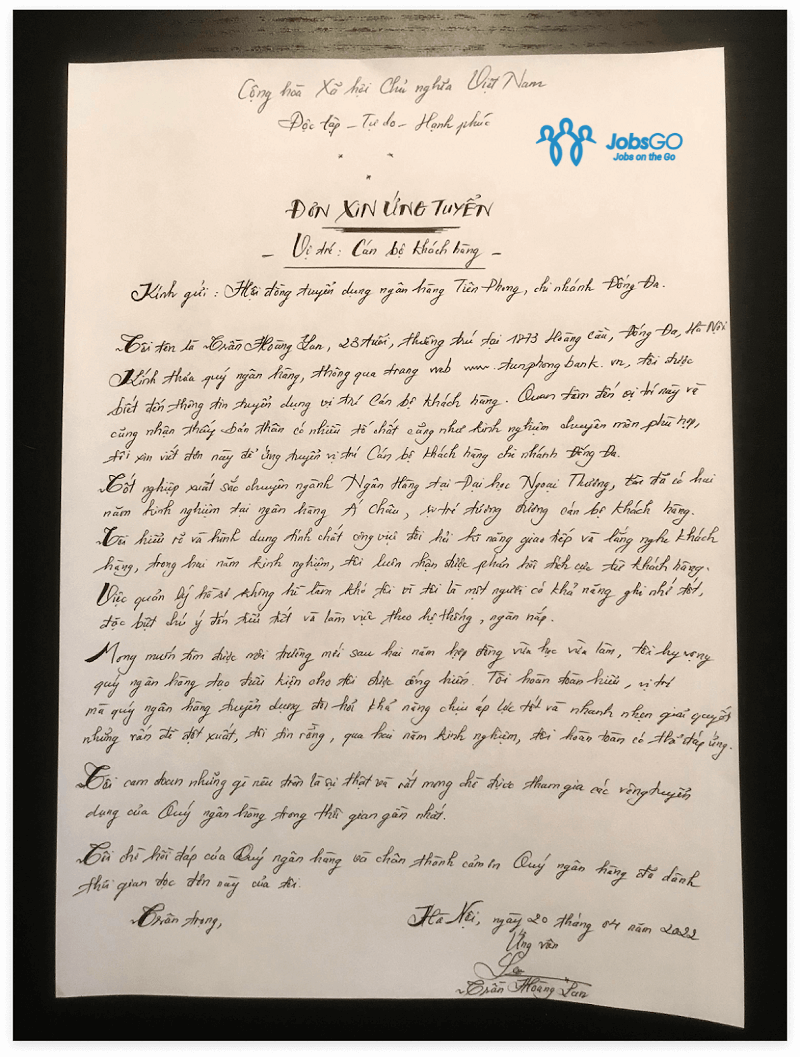 Cộng hòa Xã hội Chủ nghĩa Việt Nam
Độc lập - Tự do - Hạnh phúc
JobsGO
Jobs on the Go
ĐƠN XIN ỨNG TUYỂN
- Vị trí: Cán bộ khách hàng -
Kính gửi: Hội đồng tuyển dụng ngân hàng Tiên Phong, chi nhánh Đống Đa.
Tôi tên là Trần Hoàng Lan, 23 tuổi, thường trú tại 1973 Hoàng Cầu, Đống Đa, Hà Nội
Kính thưa quý ngân hàng, thông qua trang web www.tunphongbank.vn, tôi được
biết đến thông tin tuyển dụng vị trí Cán bộ khách hàng. Quan tâm đến vị trí này và
cũng nhận thấy bản thân có nhiều tố chất cũng như kinh nghiệm chuyên môn phù hợp,
tôi xin viết đơn này để ứng tuyển vị trí Cán bộ khách hàng chi nhánh Đống Đa.
Tốt nghiệp xuất sắc chuyên ngành Ngân Hàng tại Đại học Ngoại Thương, tôi đã có hai
năm kinh nghiệm tại ngân hàng Á Châu, vị trí tương đương cán bộ khách hàng.
Tôi hiểu rõ và hình dung tính chất công việc đòi hỏi kĩ năng giao tiếp và lắng nghe khách
hàng, trong hai năm kinh nghiệm, tôi luôn nhận được phản hồi tích cực từ khách hàng.
Việc quản lý hồ sơ không hề làm khó tôi vì tôi là một người có khả năng ghi nhớ tốt,
đặc biệt chú ý đến tiểu tiết và làm việc theo hệ thống, ngăn nắp.
Mong muốn tìm được môi trường mới sau hai năm hợp đồng vừa học vừa làm, tôi hy vọng
quý ngân hàng tạo điều kiện cho tôi được cống hiến. Tôi hoàn toàn hiểu, vị trí
mà quý ngân hàng tuyển dụng đòi hỏi khả năng chịu áp lực tốt và nhanh nhẹn giải quyết
những vấn đề đột xuất, tôi tin rằng, qua hai năm kinh nghiệm, tôi hoàn toàn có thể đáp ứng.
Tôi cam đoan những gì nêu trên là sự thật và rất mong chờ được tham gia các vòng tuyển
dụng của Quý ngân hàng trong thời gian gần nhất.
Tôi chờ hồi đáp của Quý ngân hàng và chân thành cảm ơn Quý ngân hàng đã dành
thời gian đọc đơn này của tôi.
Trân trọng,
Hà Nội, ngày 20 tháng 04 năm 2022
Ứng viên
Lan
Trần Hoàng Lan